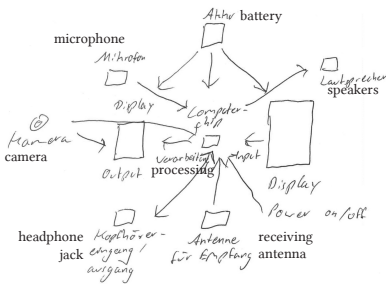 Akku battery
microphone
Mikrofon
Lautsprecher
speakers
Display
Computer-
chip
Kamera
camera
Output
Verarbeiten
processing
Input
Display
Power on/off
headphone
jack
Kopfhörer-
eingang/
ausgang
Antenne
für Empfang
receiving
antenna